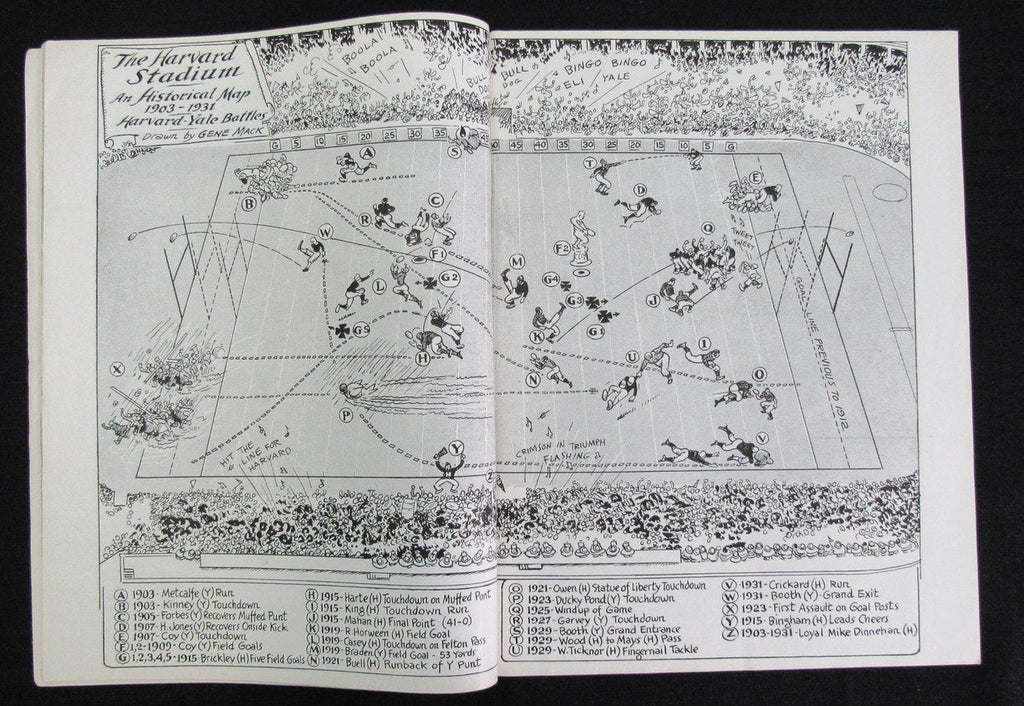 The Harvard
Stadium
An Historical Map
1903-1931
Harvard-Yale Battles
Drawn by GENE MACK
BOOLA
BOOLA
BULL
DOG
BULL
DOG
BINGO BINGO
ELI YALE
G 5 10 15 20 25 30 35 40 45
45 40 35 30 25 20 15 10 5 G
A
S
T
B
D
E
R
C
Q
F2
TWEET
TWEET
W
F1
M
L
G2
G4
G3
J
G5
K
G1
H
U
I
X
N
O
P
GOAL LINE PREVIOUS TO 1912
HIT THE
LINE FOR
HARVARD
Y
H
CRIMSON IN TRIUMPH
FLASHING
V
Z
A 1903-Metcalfe (Y) Run
B 1903-Kinney (Y) Touchdown
C 1905-Forbes (Y) Recovers Muffed Punt
D 1907-H.Jones (Y) Recovers Onside Kick
E 1907-Coy (Y) Touchdown
F 1,2-1909-Coy (Y) Field Goals
G 1,2,3,4,5-1915 Brickley (H) Five Field Goals
H 1915-Harte (H) Touchdown on Muffed Punt
I 1915-King (H) Touchdown Run
J 1915-Mahan (H) Final Point (41-0)
K 1919-R.Horween (H) Field Goal
L 1919-Casey (H) Touchdown on Felton Pass
M 1919-Braden (Y) Field Goal - 53 Yards
N 1921-Buell (H) Runback of Y Punt
O 1921-Owen (H) Statue of Liberty Touchdown
P 1923-Ducky Pond (Y) Touchdown
Q 1925-Windup of Game
R 1927-Garvey (Y) Touchdown
S 1929-Booth (Y) Grand Entrance
T 1929-Wood (H) to Mays (H) Pass
U 1929-W.Ticknor (H) Fingernail Tackle
V 1931-Crickard (H) Run
W 1931-Booth (Y)-Grand Exit
X 1923-First Assault on Goal Posts
Y 1915-Bingham (H) Leads Cheers
Z 1903-1931-Loyal Mike Dinnehan (H)